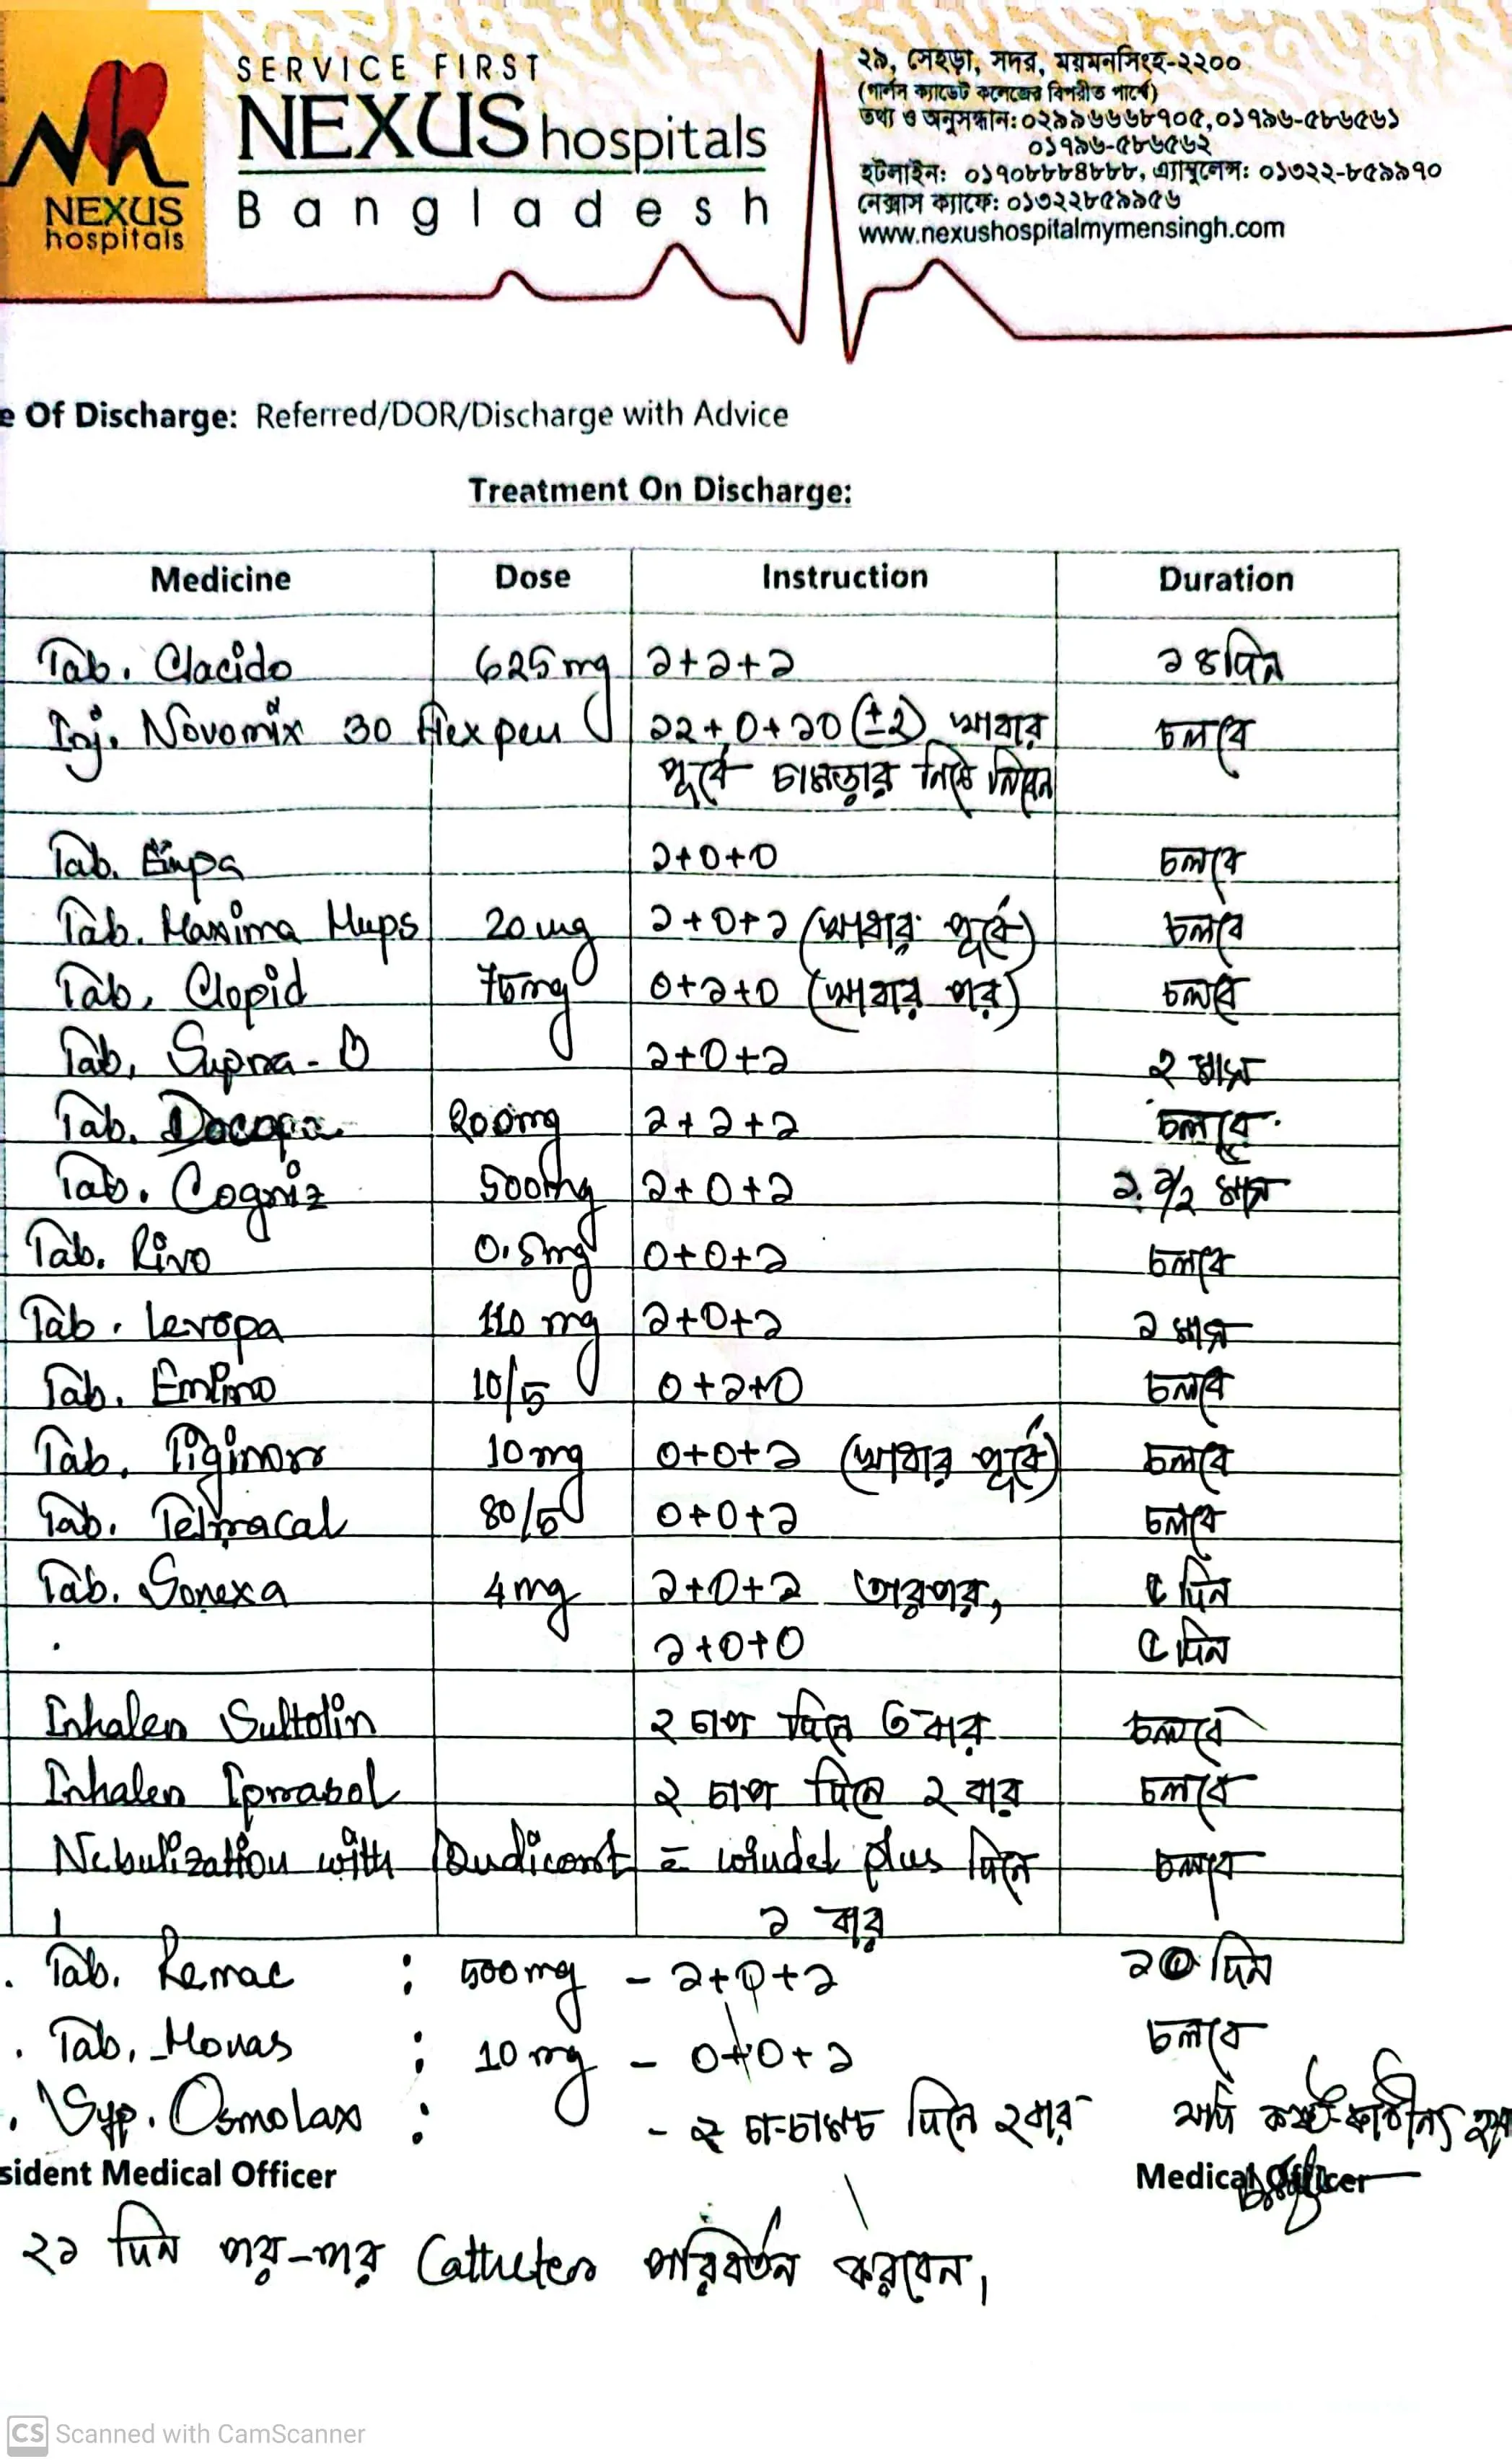 SERVICE FIRST
NEXUS hospitals
Bangladesh
NEXUS
hospitals
২৯, সেহড়া, সদর, ময়মনসিংহ-২২০০
(গার্লস ক্যাডেট কলেজের বিপরীত পার্শ্বে)
তথ্য ও অনুসন্ধান: ০২৯৯৬৬৬৮৭০৫, ০১৭৯৬-৫৮৬৫৬১
০১৭৯৬-৫৮৬৫৬২
হটলাইন: ০১৭০৮৮৮৪৮৮৮, এ্যাম্বুলেন্স: ০১৩২২-৮৫৯৯৭০
নেক্সাস ক্যাফে: ০১৩২২৮৫৯৯৫৬
www.nexushospitalmymensingh.com
e Of Discharge: Referred/DOR/Discharge with Advice
Treatment On Discharge:
Medicine Dose Instruction Duration
Tab. Clacido 625 mg ১+১+১ ১৪ দিন
Inj. Novomix 30 flexpen ২২+০+২০ (±২) খাবার চলবে
পূর্বে চামড়ার নিচে নিবেন
Tab. Empa ১+০+০ চলবে
Tab. Maxima Mups 20 mg ১+০+১ (খাবার পূর্বে) চলবে
Tab. Clopid 75mg ০+১+০ (খাবার পর) চলবে
Tab. Supra-D ১+০+১ ২ মাস
Tab. Docopa 200mg ১+১+১ চলবে
Tab. Cogniz 500mg ১+০+১ মাস
Tab. Rivo 0.5mg ০+০+১ চলবে
Tab. Levopa 110 mg ১+০+১ ১ মাস
Tab. Emlino 10/5 ০+১+০ চলবে
Tab. Tiginor 10 mg ০+০+১ (খাবার পূর্বে) চলবে
Tab. Telmacal 80/5 ০+০+১ চলবে
Tab. Sonexa 4 mg ১+০+১ তারপর, ৫ দিন
১+০+০ ৫ দিন
Inhaler Sultolin ২ চাপ দিনে ৩ বার চলবে
Inhaler Iprasol ২ চাপ দিনে ২ বার চলবে
Nebulization with Budicort c̄ windel plus দিনে চলবে
১ বার
Tab. Remac : 500 mg - ১+০+১ ১০ দিন
Tab. Monas : 10 mg - ০+০+১ চলবে
Syp. Osmolax : - ২ চা-চামচ দিনে ২ বার যদি কোষ্ঠ-কাঠিন্য হয়
sident Medical Officer Medical Officer
২১ দিন পর-পর Catheter পরিবর্তন করবেন।
CS Scanned with CamScanner